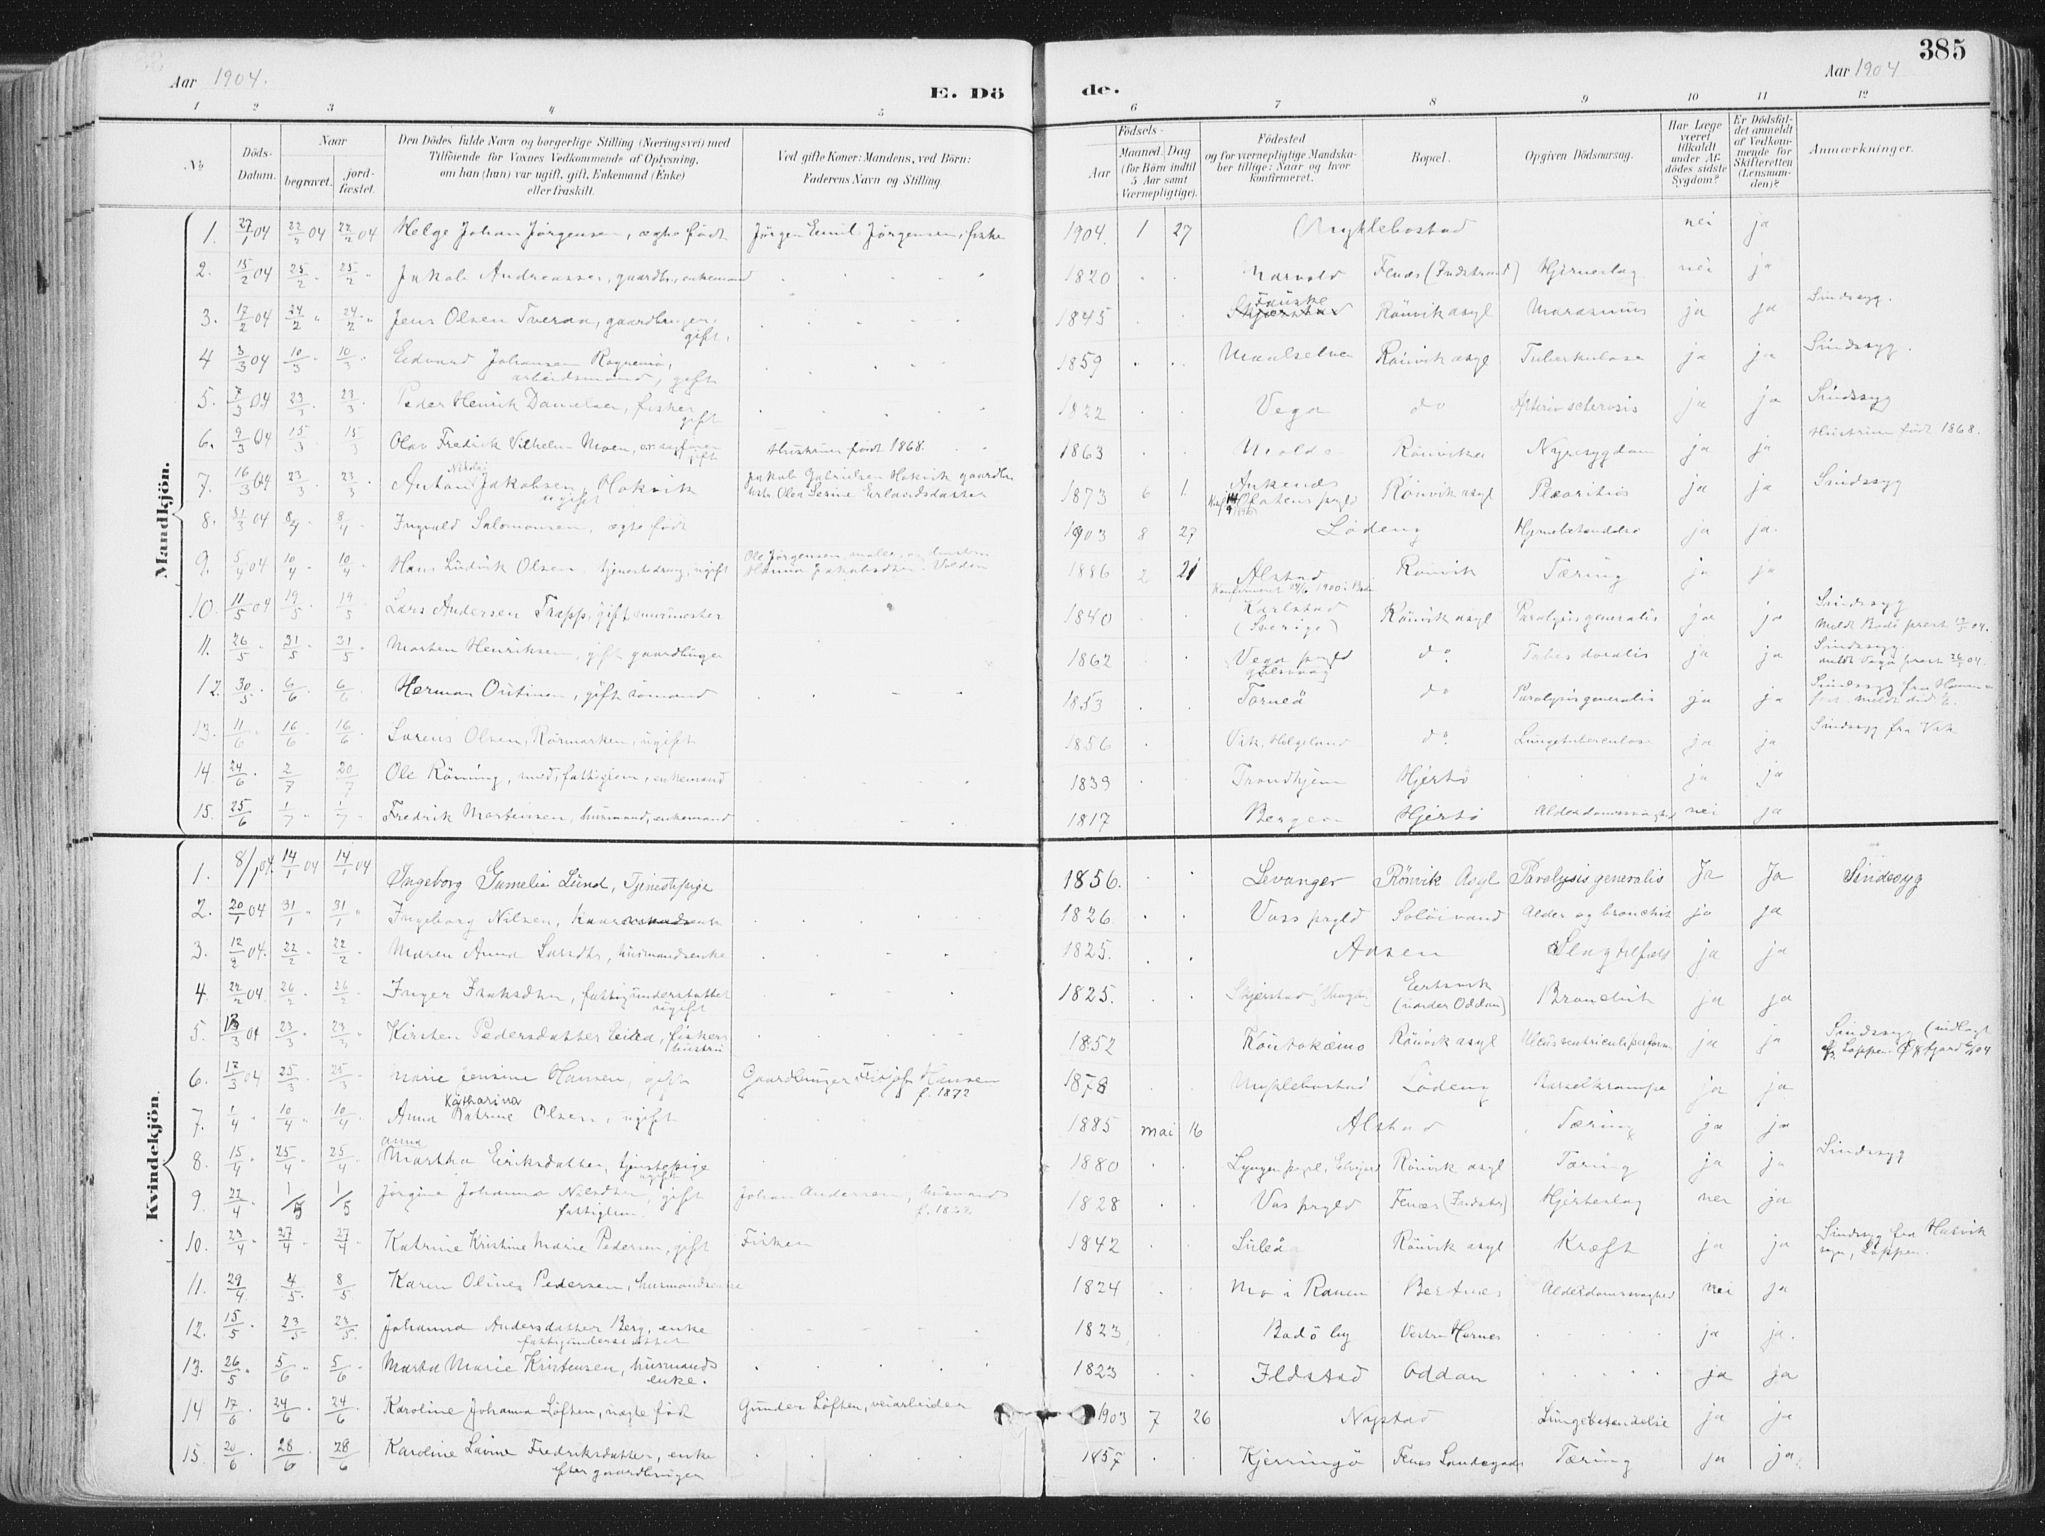 385
Aar 1904.
E. Dö
de.
Aar 1904
1 2 3 4 5 6 7 8 9 10 11 12
No.
Döds-
Datum.
Naar
begravet.
jord-
fæstet.
Den Dödes fulde Navn og borgerlige Stilling (Næringsvei) med
Tilföiende for Voxnes Vedkommende af Oplysning,
om han (hun) var ugift, gift, Enkemand (Enke)
eller fraskilt.
Ved gifte Koner: Mandens, ved Börn:
Faderens Navn og Stilling.
Födsels-
Aar
Maaned. Dag
(for Börn indtil
5 Aar samt
Værnepligtige).
Födested
og for værnepligtige Mandska-
ber tillige: Naar og hvor
konfirmeret.
Bopæl.
Opgiven Dödsaarsag.
Har Læge
været
tilkaldt
under Af-
dödes sidste
Sygdom?
Er Dödsfal-
det anmeldt
af Vedkom-
mende for
Skifteretten
(Lensman-
den)?
Anmærkninger.
Mandkjön.
1. 27/1 04 22/2 04 22/2 04 Helge Johan Jörgensen, ægte född Jörgen Emil Jörgensen, fisker 1904. 1 27 Myklebostad nei ja
2. 15/2 04 25/2 " 25/2 " Jakob Andreassen, gaardbr., enkemand 1820 Fenæs (Indstrand) Hjerneslag nei ja
3. 17/2 04 24/2 " 24/2 " Jens Olsen Tveraa, gaardbruger, gift, 1845 Fauske Rönvik asyl Marasmus ja ja Sindssyg.
4 3/3 04 10/3 10/3 Edvard Johansen arbeidsmand, gift 1859 Maalselven Rönvik asyl Tuberkulose ja ja Sindssyg.
5. 7/3 04 23/3 23/3 Peder Henrik Danielsen, fisker gift 1822 Vega do Arteriosclerosis ja ja Sindssyg
6. 9/3 04 15/3 15/3 Olav Fredrik Vilhelm Moen, gift Hustruen født 1868. 1863 Rönvik Nyresygdom ja ja Hustruen født 1868.
7. 16/3 04 23/3 23/3 Anton Nikolai Jakobsen, Hokvik ugift Jakob Gabrielsen Hokvik gaardbr 1873 6 1. Ankenes Rönvik asyl ja ja Sindssyg
8. 31/3 04 8/4 8/4 Ingvald Salomonsen, ægte född 1903 8 27 Löding Hjernebetændelse ja ja.
9. 5/4 04 10/4 10/4 Hans Ludvik Olsen, tjenestedreng, ugift Ole Jörgensen 1886 2 21 Alstad Rönvik Tæring ja ja
10. 11/5 04 19/5 19/5 Lars Andersen Trapp, gift, murmester 1840 Karlstad (Sverige) Rönvik asyl Paralysis generalis ja ja Sindssyg
11. 26/5 31/5 31/5 Morten Henriksen, gift gaardbruger 1862 Vega prgld do. Tabes dorsalis ja ja Sindssyg.
12. 30/5 6/6 6/6 Herman Outinen, gift sömand 1853 Torneå do Paralysis generalis ja ja Sindssyg fra
13. 11/6 16/6 16/6 Sörens Olsen, Rörmarken, ugift 1856 Vik, Helgeland do. Lungetuberculose ja ja Sindssyg fra Vik
14 24/6 2/7 20/7 Ole Röning, enkemand 1839 Trondhjem Hjertö ja ja
15. 25/6 1/7 1/7 Fredrik Martinsen, husmand, enkemand 1817 Bergen Hjertö Alderdomssvaghed nei ja
Kvindekjön.
1. 8/1 04. 14/1 04 14/1 04 Ingeborg Gamelia Lund, Tjenestepige 1856. Levanger Rönvik Asyl Paralysis generalis Ja Ja Sindssyg
2. 20/1 04 31/1 31/1 Ingeborg Nilsen, 1826 Voss prgld Soløivand Alder og bronchit ja ja
3. 12/2 04. 22/2 22/2 Maren Anna Larsdtr, husmandsenke 1825. Aasen Slagtilfæld ja ja
4. 22/2 04. 26/2 26/2 Inger Isaksdtr, fattigunderstøttet ugift 1825. Skjerstad (under Oddan) Bronchit ja ja
5. 13/3 04 23/3 23/3 Kirsten Pedersdatter, fiskers hustru 1852 Koutokæino Rönvik asyl Ulcus ventriculi perfor. ja ja Sindssyg (indlagt
6. 17/3 04 25/3 25/3 Marie Jensine Hansen, gift Gaardbruger Hansen f. 1872 1878 Myklebostad Löding Barselkrampe ja ja
7. 1/4 10/4 10/4 Anna Katharina Katrine Olsen, ugift 1885 mai 16 Alstad Tæring ja ja
8. 15/4 25/4 25/4 Anna Martha Eriksdatter, tjenestepige ugift 1880 Lyngen Rönvik asyl Tæring ja ja Sindssyg
9. 22/4 1/5 1/5 Jörgine Johanna Nilsdtr, gift fattiglem. Johan Andersen, husmand 1828 Vos prgld Fenæs (Indstr) Hjerteslag nei ja
10. 23/4 27/4 27/4 Katrine Kristine Marie Pedersen, gift Fisker 1842 Luleå Rönvik asyl Kræft ja ja Sindssyg fra Hasvik sogn, Loppen.
11. 29/4 4/5. 8/5 Karen Oline Pedersen, husmandsenke 1824 Mo i Ranen Bertnes Alderdomssvaghed nei ja
12. 15/5 23/5 23/5. Johanna Andersdatter Berg, enke fattigunderstøttet 1823 Bodö by Vestre Hernes ja ja.
13. 26/5 5/6 " 5/6 Marta Marie Kristensen, husmands enke. 1823 Ildstad Oddan ja ja
14 17/6 24/6 24/6 Karoline Johanna Löften, uægte född Gunder Löften, veiarbeider 1903 7 26 Nystad Lungebetændelse ja ja
15. 20/6 28/6 28/6 Karoline Lavine Fredriksdatter, enke efter gaardbruger 1857 Kjerringö Fenes Tæring ja ja